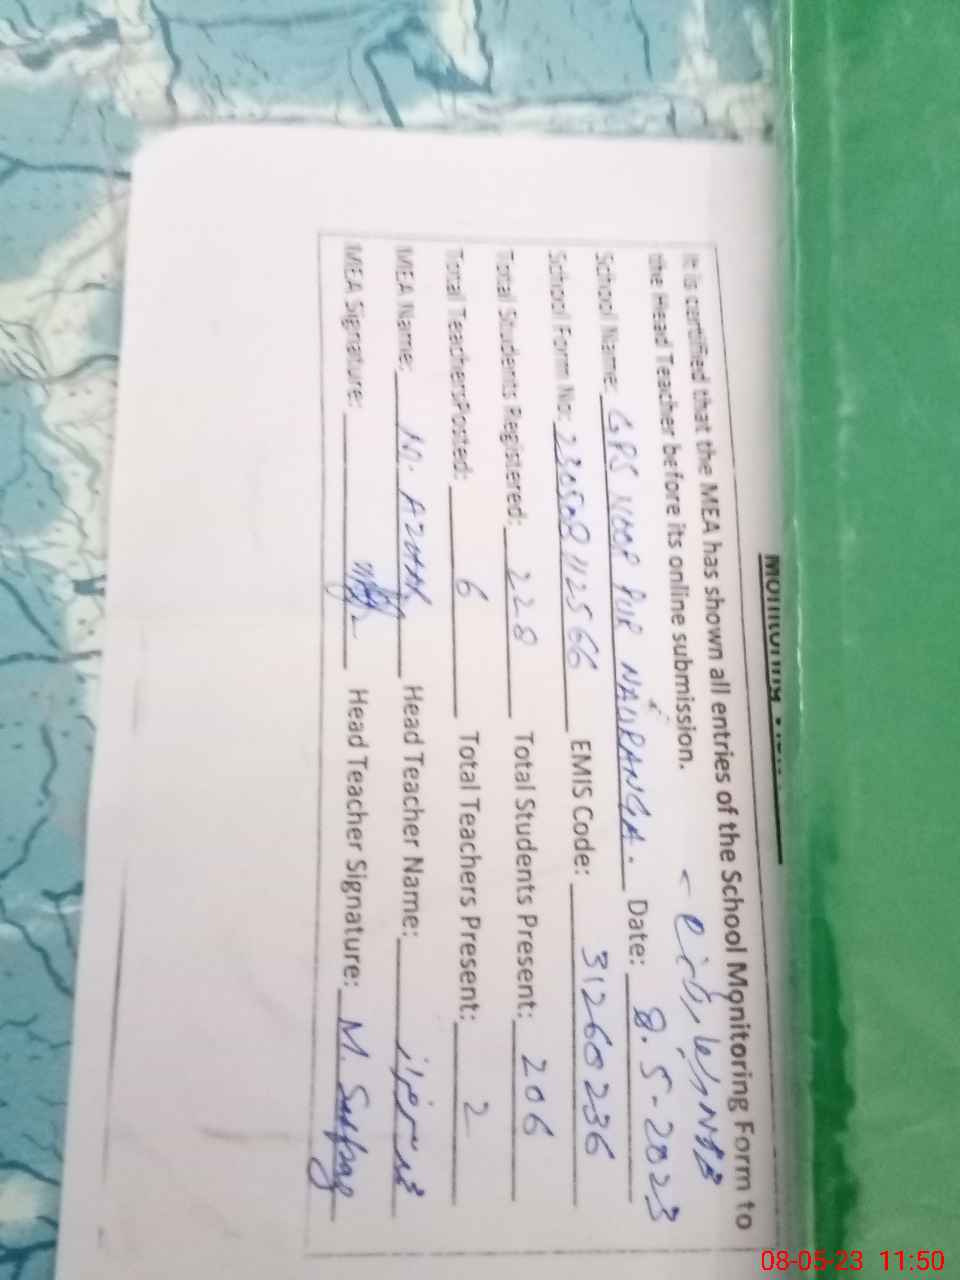 It is certified that the MEA has shown all entries of the School Monitoring Form to
the Head Teacher before its online submission.
School Name: GPS NOOR PUR NAURANGA. Date: 8.5-2023
School Form No: 230508112566 EMIS Code: 31260236
Total Students Registered: 228 Total Students Present: 206
Total Teachers Posted: 6 Total Teachers Present: 2
MEA Name: M. AZHAR Head Teacher Name: محمد سرفراز
MEA Signature: Head Teacher Signature: M. Sarfraz
08-05-23 11:50